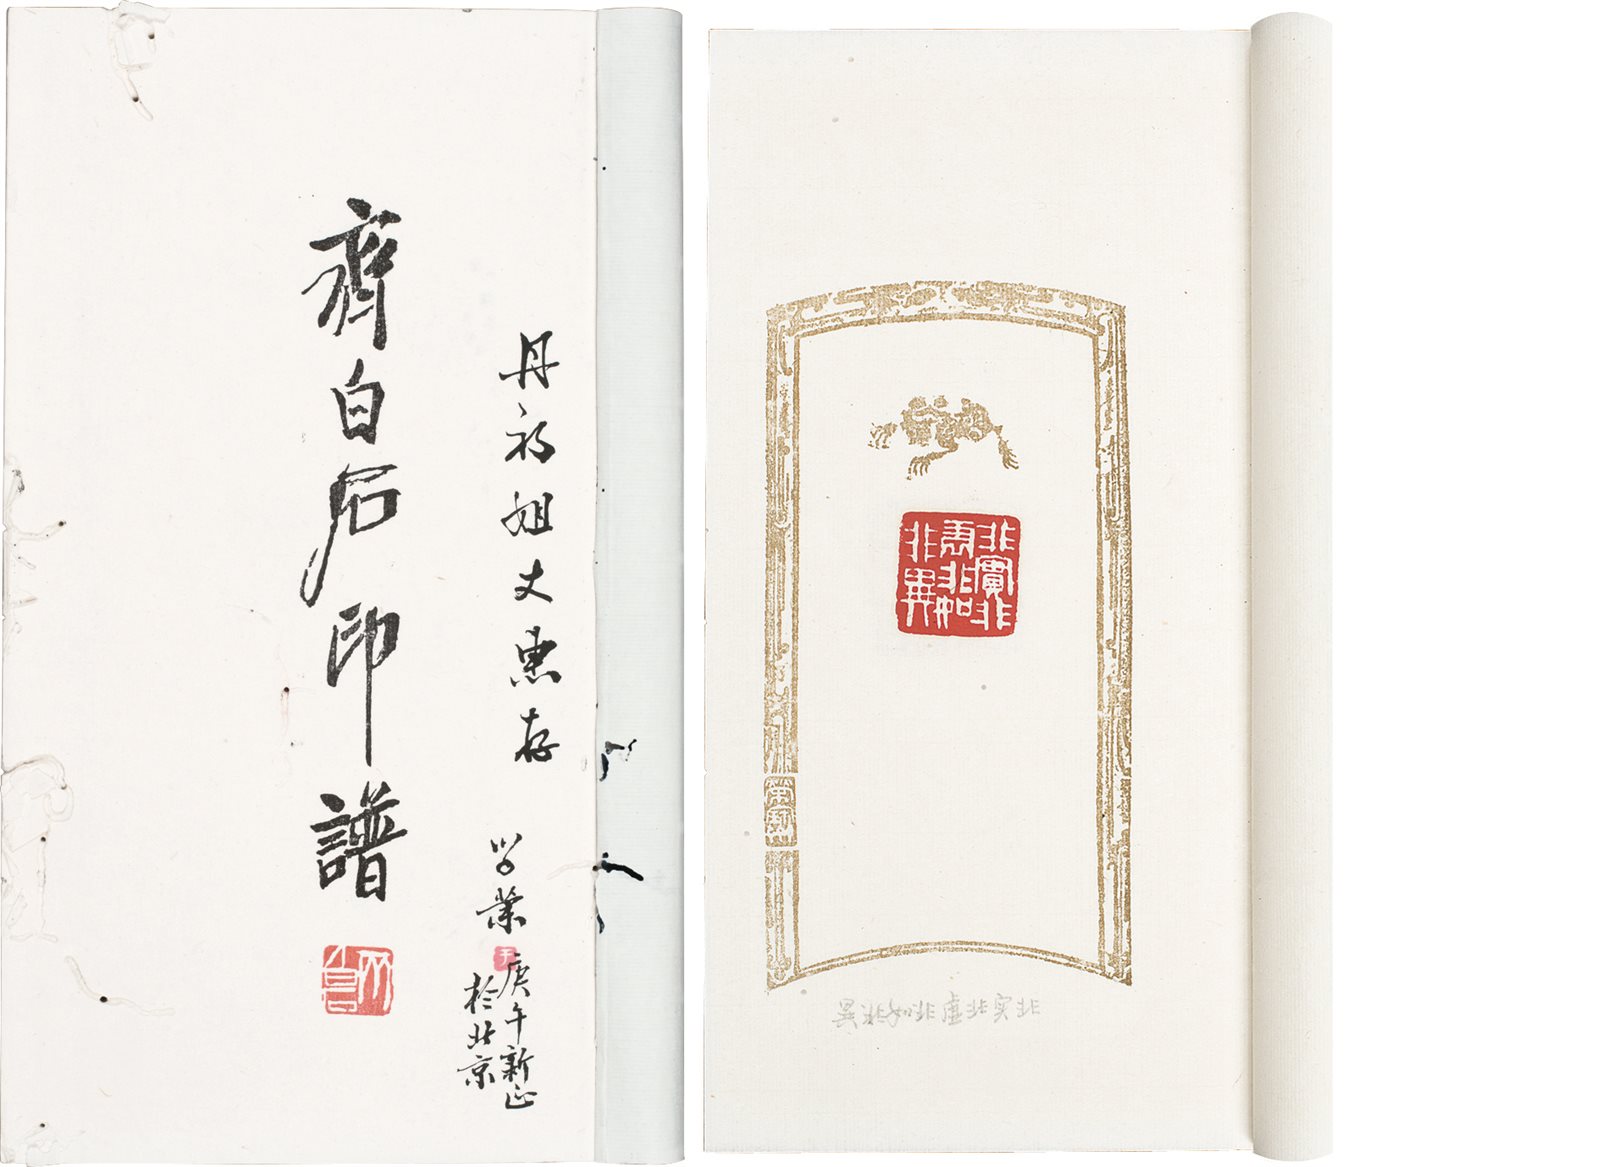 齊白石印譜
丹初姐丈惠存
学業
庚午新正
於北京
非實非
虛非如
非異
非实非虚非如非異